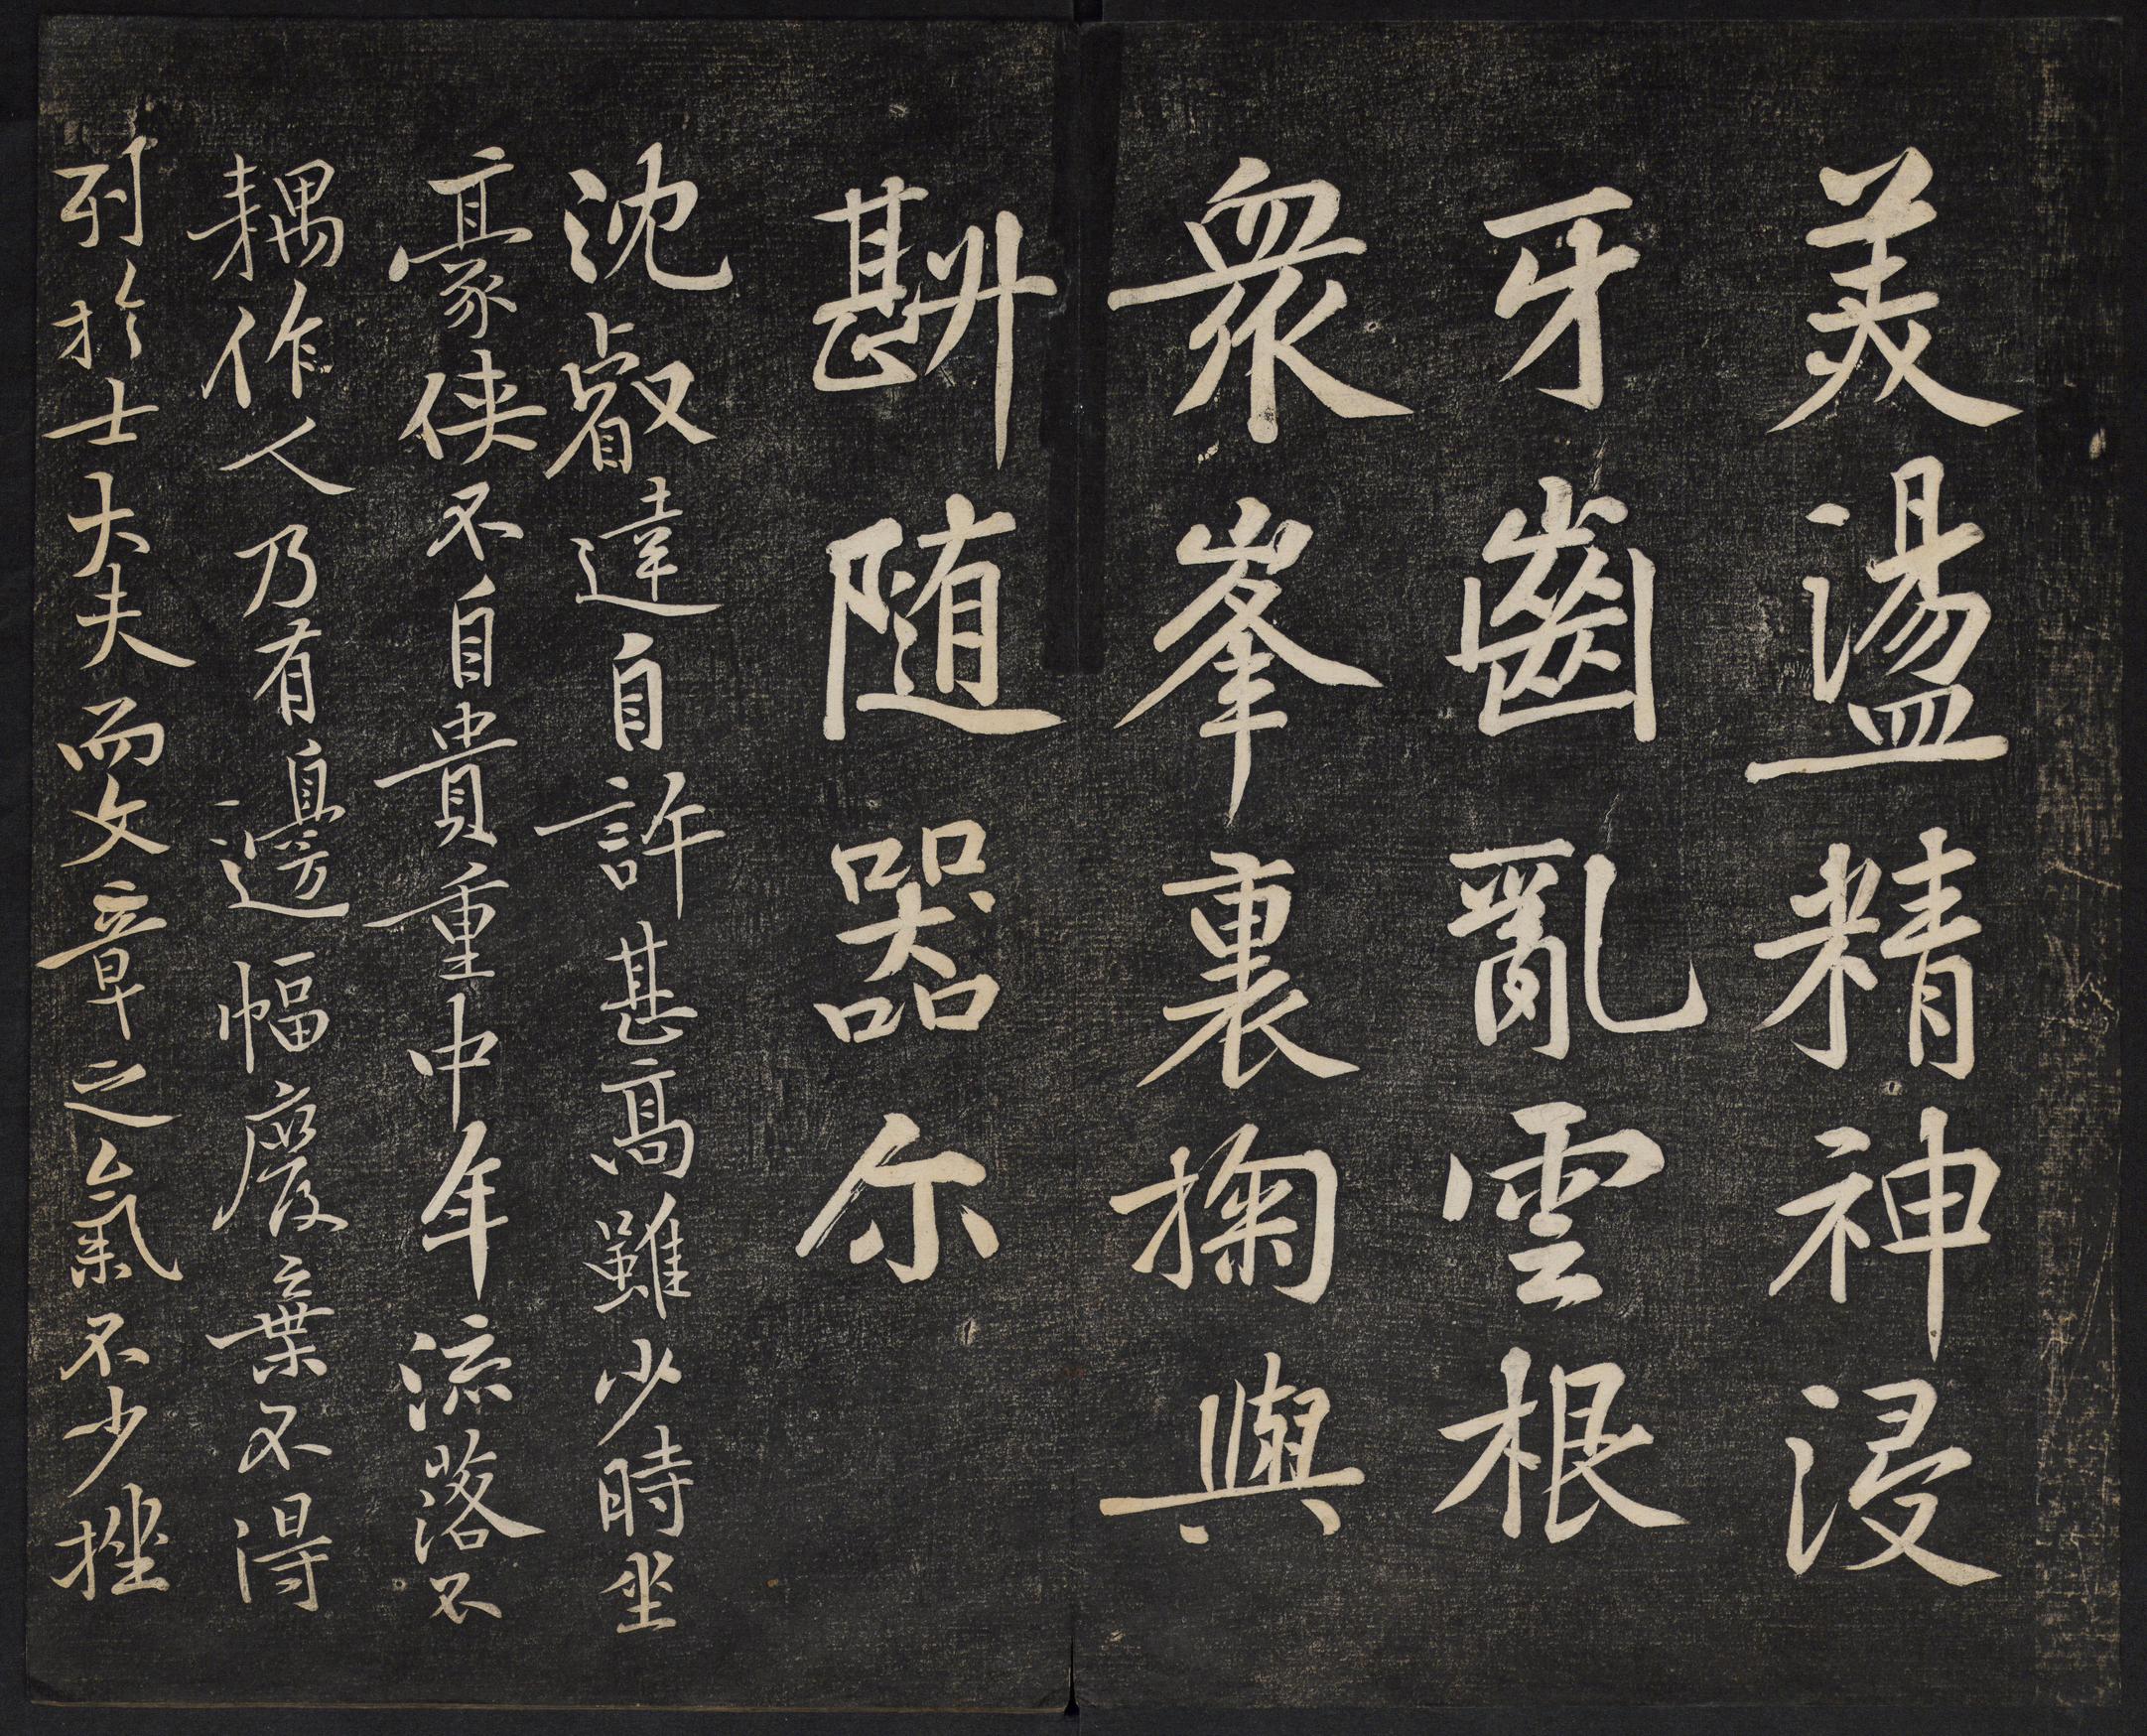 美盪精神浸
牙齒亂雲根
衆峯裏掬與
斟随器尓
沈叡達自許甚高雖少時坐
豪侠不自貴重中年流落不
耦作人乃有邊幅廢棄不得
列於士大夫而文章之氣不少挫